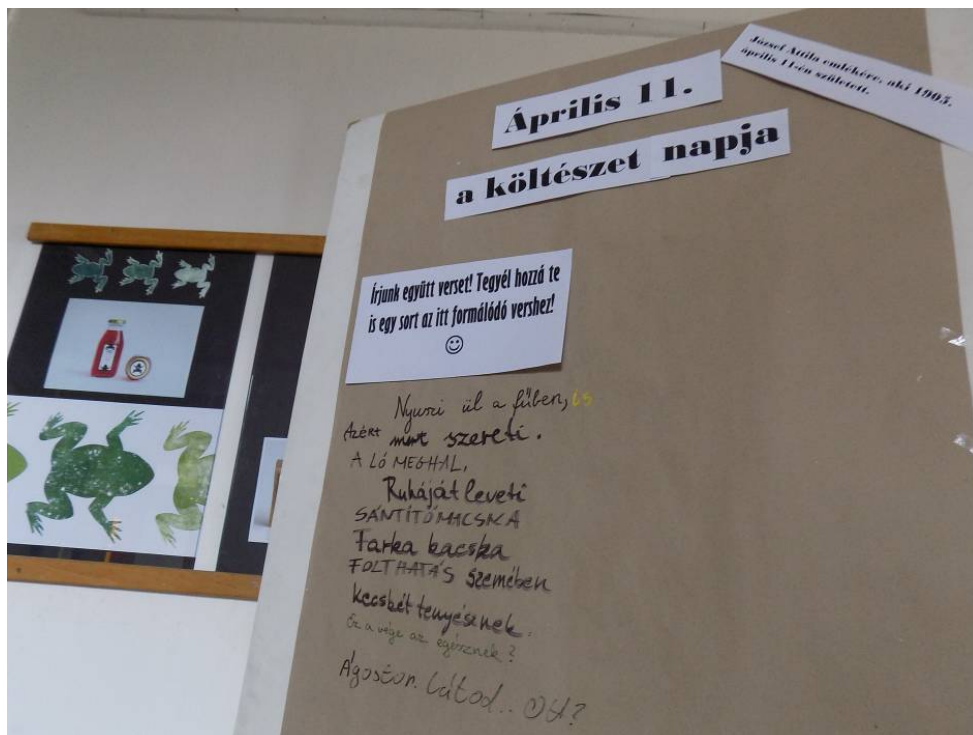 József Attila emlékére, aki 1905.
április 11-én született.
Április 11.
a költészet napja
Írjunk együtt verset! Tegyél hozzá te
is egy sort az itt formálódó vershez!
☺
Nyuszi ül a fűben, és
Azért mert szereti.
A LÓ MEGHAL,
Ruháját leveti
SÁNTÍTÓMACSKA
Tarka kacska
FOLTHATÁS szemében
Kecskét tenyésznek.
Ez a vége az egésznek?
Ágoston. Látod..